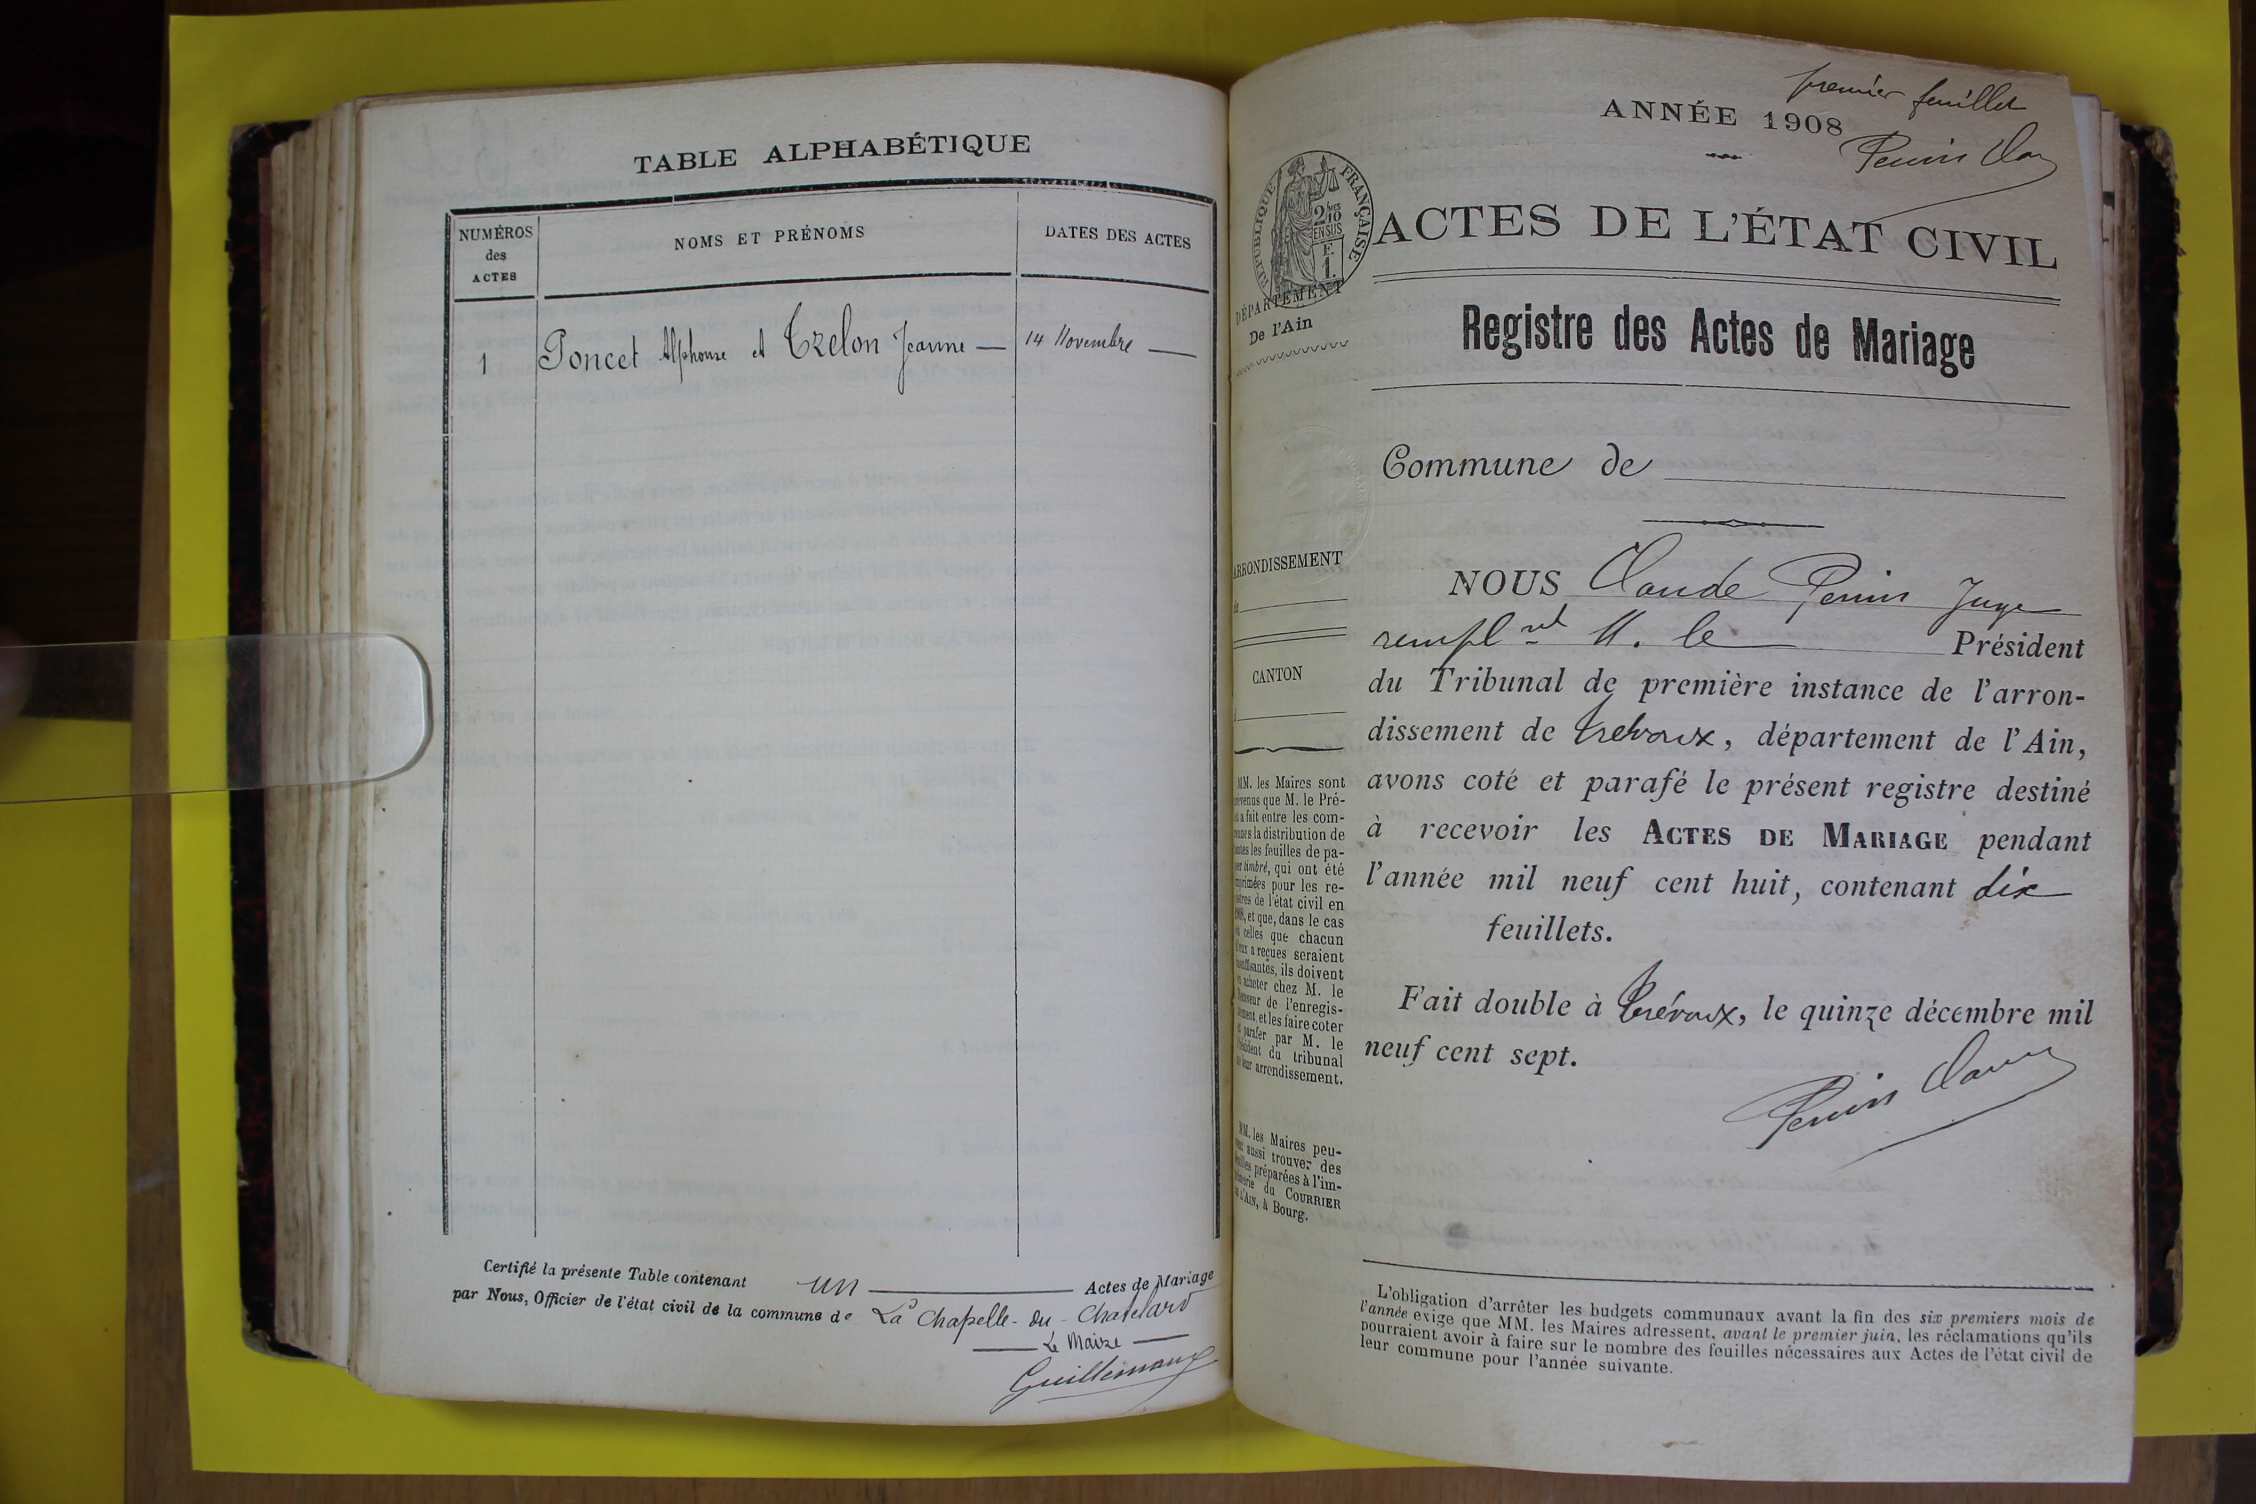 TABLE ALPHABÉTIQUE
NUMÉROS
des
ACTES
NOMS ET PRÉNOMS
DATES DES ACTES
1
Poncet Alphonse et Trelon Jeanne
14 Novembre
Certifié la présente Table contenant un Actes de Mariage
par Nous, Officier de l'état civil de la commune de La Chapelle-du-Chatelard
Le Maire
Guillemaux
premier feuillet
ANNÉE 1908
Perrin Clau
RÉPUBLIQUE FRANÇAISE
2/10
EN SUS
F
1.
ACTES DE L'ÉTAT CIVIL
DÉPARTEMENT
De l'Ain
Registre des Actes de Mariage
Commune de
ARRONDISSEMENT
CANTON
NOUS Claude Perrin Juge
rempl nt M. le Président
du Tribunal de première instance de l'arron-
dissement de Trévoux, département de l'Ain,
avons coté et parafé le présent registre destiné
à recevoir les ACTES DE MARIAGE pendant
l'année mil neuf cent huit, contenant dix
feuillets.
Fait double à Trévoux, le quinze décembre mil
neuf cent sept.
Perrin Clau
MM. les Maires sont
que M. le Pré-
a fait entre les com-
la distribution de
les feuilles de pa-
timbré, qui ont été
pour les re-
de l'état civil en
et que, dans le cas
celles que chacun
a reçues seraient
ils doivent
acheter chez M. le
de l'enregis-
et les faire coter
parafer par M. le
du tribunal
leur arrondissement.
MM. les Maires peu-
aussi trouver des
préparées à l'im-
du COURRIER
L'AIN, à Bourg.
L'obligation d'arrêter les budgets communaux avant la fin des six premiers mois de
l'année exige que MM. les Maires adressent, avant le premier juin, les réclamations qu'ils
pourraient avoir à faire sur le nombre des feuilles nécessaires aux Actes de l'état civil de
leur commune pour l'année suivante.